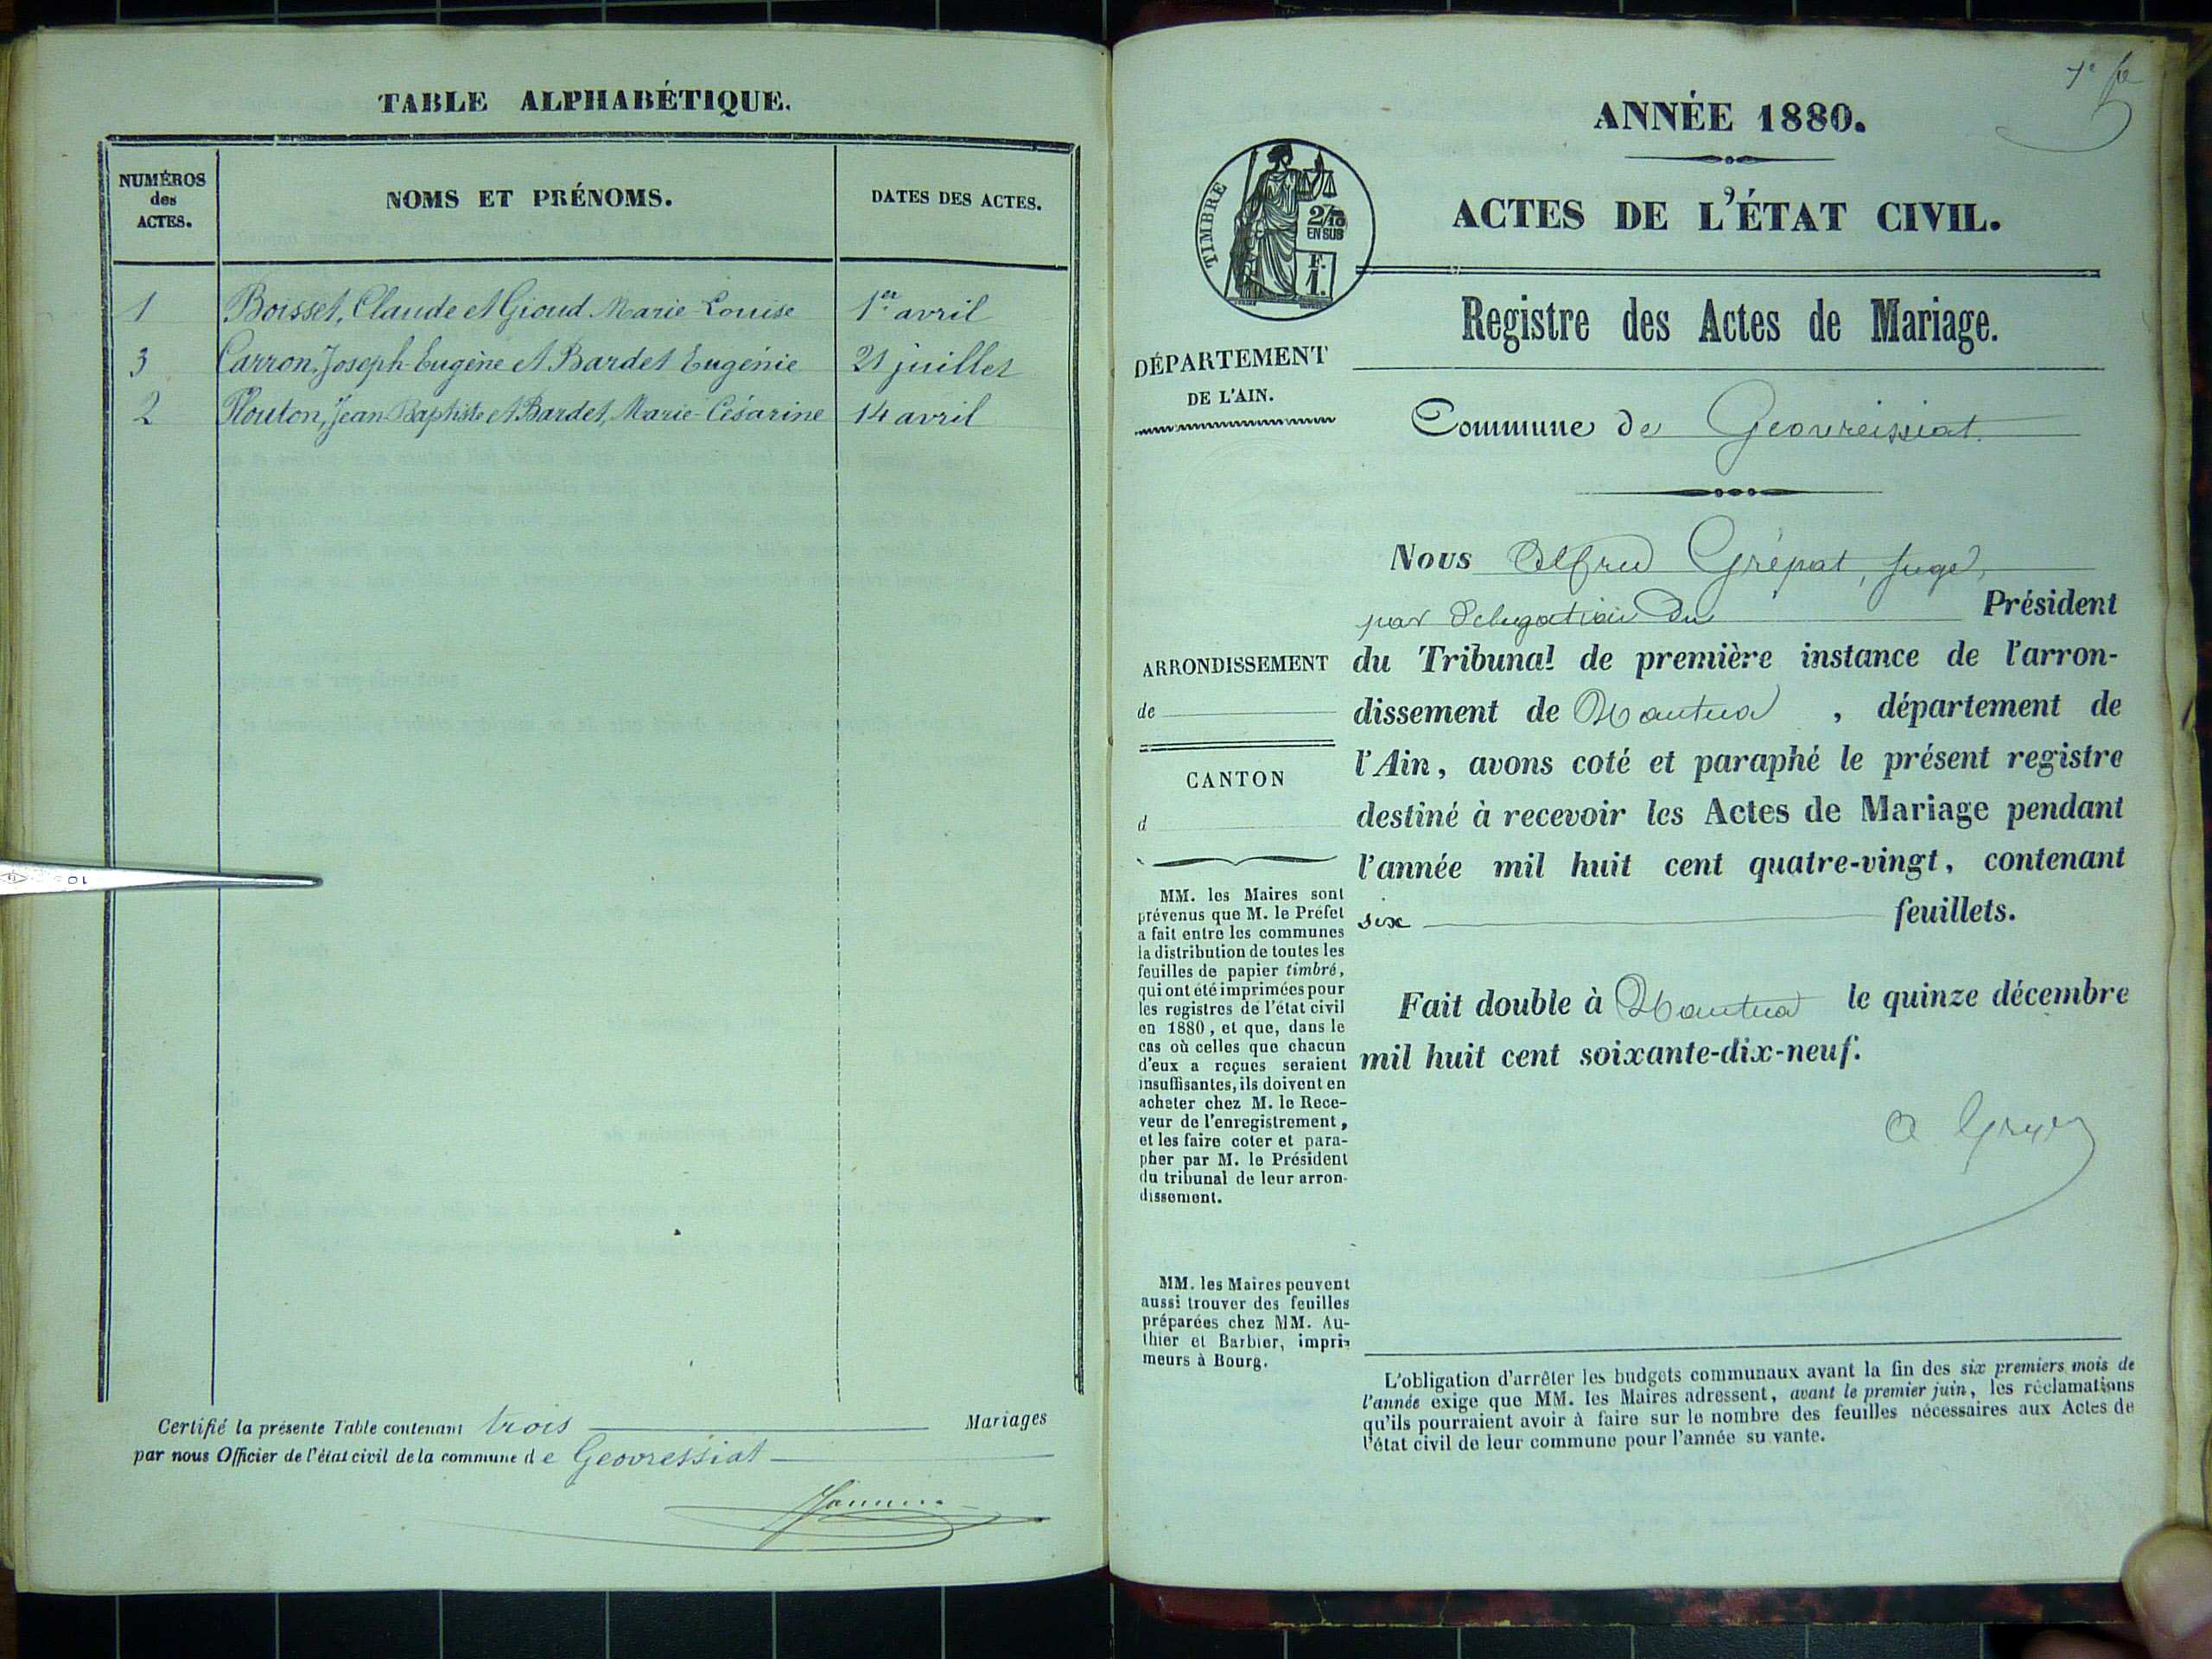 TABLE ALPHABÉTIQUE.
NUMÉROS
des
ACTES.
NOMS ET PRÉNOMS.
DATES DES ACTES.
1 Boisset, Claude et Gioud Marie-Louise 1er avril
3 Carron, Joseph-Eugène et Bardet Eugénie 21 juillet
2 Plouton, Jean-Baptiste et Bardet, Marie-Césarine 14 avril
Certifié la présente Table contenant trois Mariages
par nous Officier de l'état civil de la commune de Geovressiat
ANNÉE 1880.
ACTES DE L'ÉTAT CIVIL.
TIMBRE
2/10
EN SUS
F.
1.
Registre des Actes de Mariage.
DÉPARTEMENT
DE L'AIN.
Commune de Geovreissiat.
Nous Alfred Grépat, juge,
par délégation du Président
ARRONDISSEMENT
de
CANTON
d
du Tribunal de première instance de l'arron-
dissement de Nantua, département de
l'Ain, avons coté et paraphé le présent registre
destiné à recevoir les Actes de Mariage pendant
l'année mil huit cent quatre-vingt, contenant
six feuillets.
Fait double à Nantua le quinze décembre
mil huit cent soixante-dix-neuf.
MM. les Maires sont
prévenus que M. le Préfet
a fait entre les communes
la distribution de toutes les
feuilles de papier timbré,
qui ont été imprimées pour
les registres de l'état civil
en 1880, et que, dans le
cas où celles que chacun
d'eux a reçues seraient
insuffisantes, ils doivent en
acheter chez M. le Rece-
veur de l'enregistrement,
et les faire coter et para-
pher par M. le Président
du tribunal de leur arron-
dissement.
MM. les Maires peuvent
aussi trouver des feuilles
préparées chez MM. Au-
thier et Barbier, impri-
meurs à Bourg.
L'obligation d'arrêter les budgets communaux avant la fin des six premiers mois de
l'année exige que MM. les Maires adressent, avant le premier juin, les réclamations
qu'ils pourraient avoir à faire sur le nombre des feuilles nécessaires aux Actes de
l'état civil de leur commune pour l'année su vante.